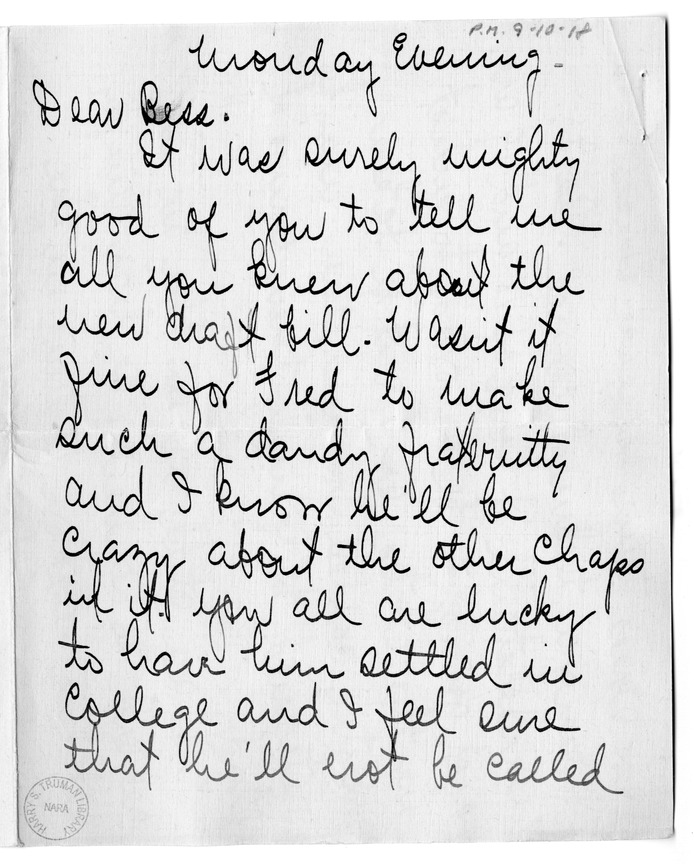 P.M. 9-10-18
Monday Evening-
Dear Bess.
It was surely mighty
good of you to tell me
all you knew about the
new draft bill. Wasn't it
fine for Fred to make
such a dandy fraternitty
and I know he'll be
crazy about the other chaps
in it. You all are lucky
to have him settled in
college and I feel sure
that he'll not be called
HARRY S. TRUMAN LIBRARY
NARA